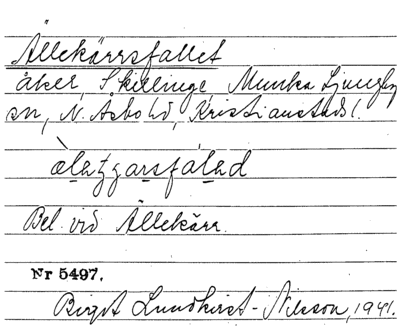 Ällekärrsfallet
åker, Skillinge, Munka Ljungby
sn, N. Åsbo hd, Kristianstads l.
Bel. vid Ällekärr.
Nr 5497.
Birgit Lundkvist-Nilsson, 1941.